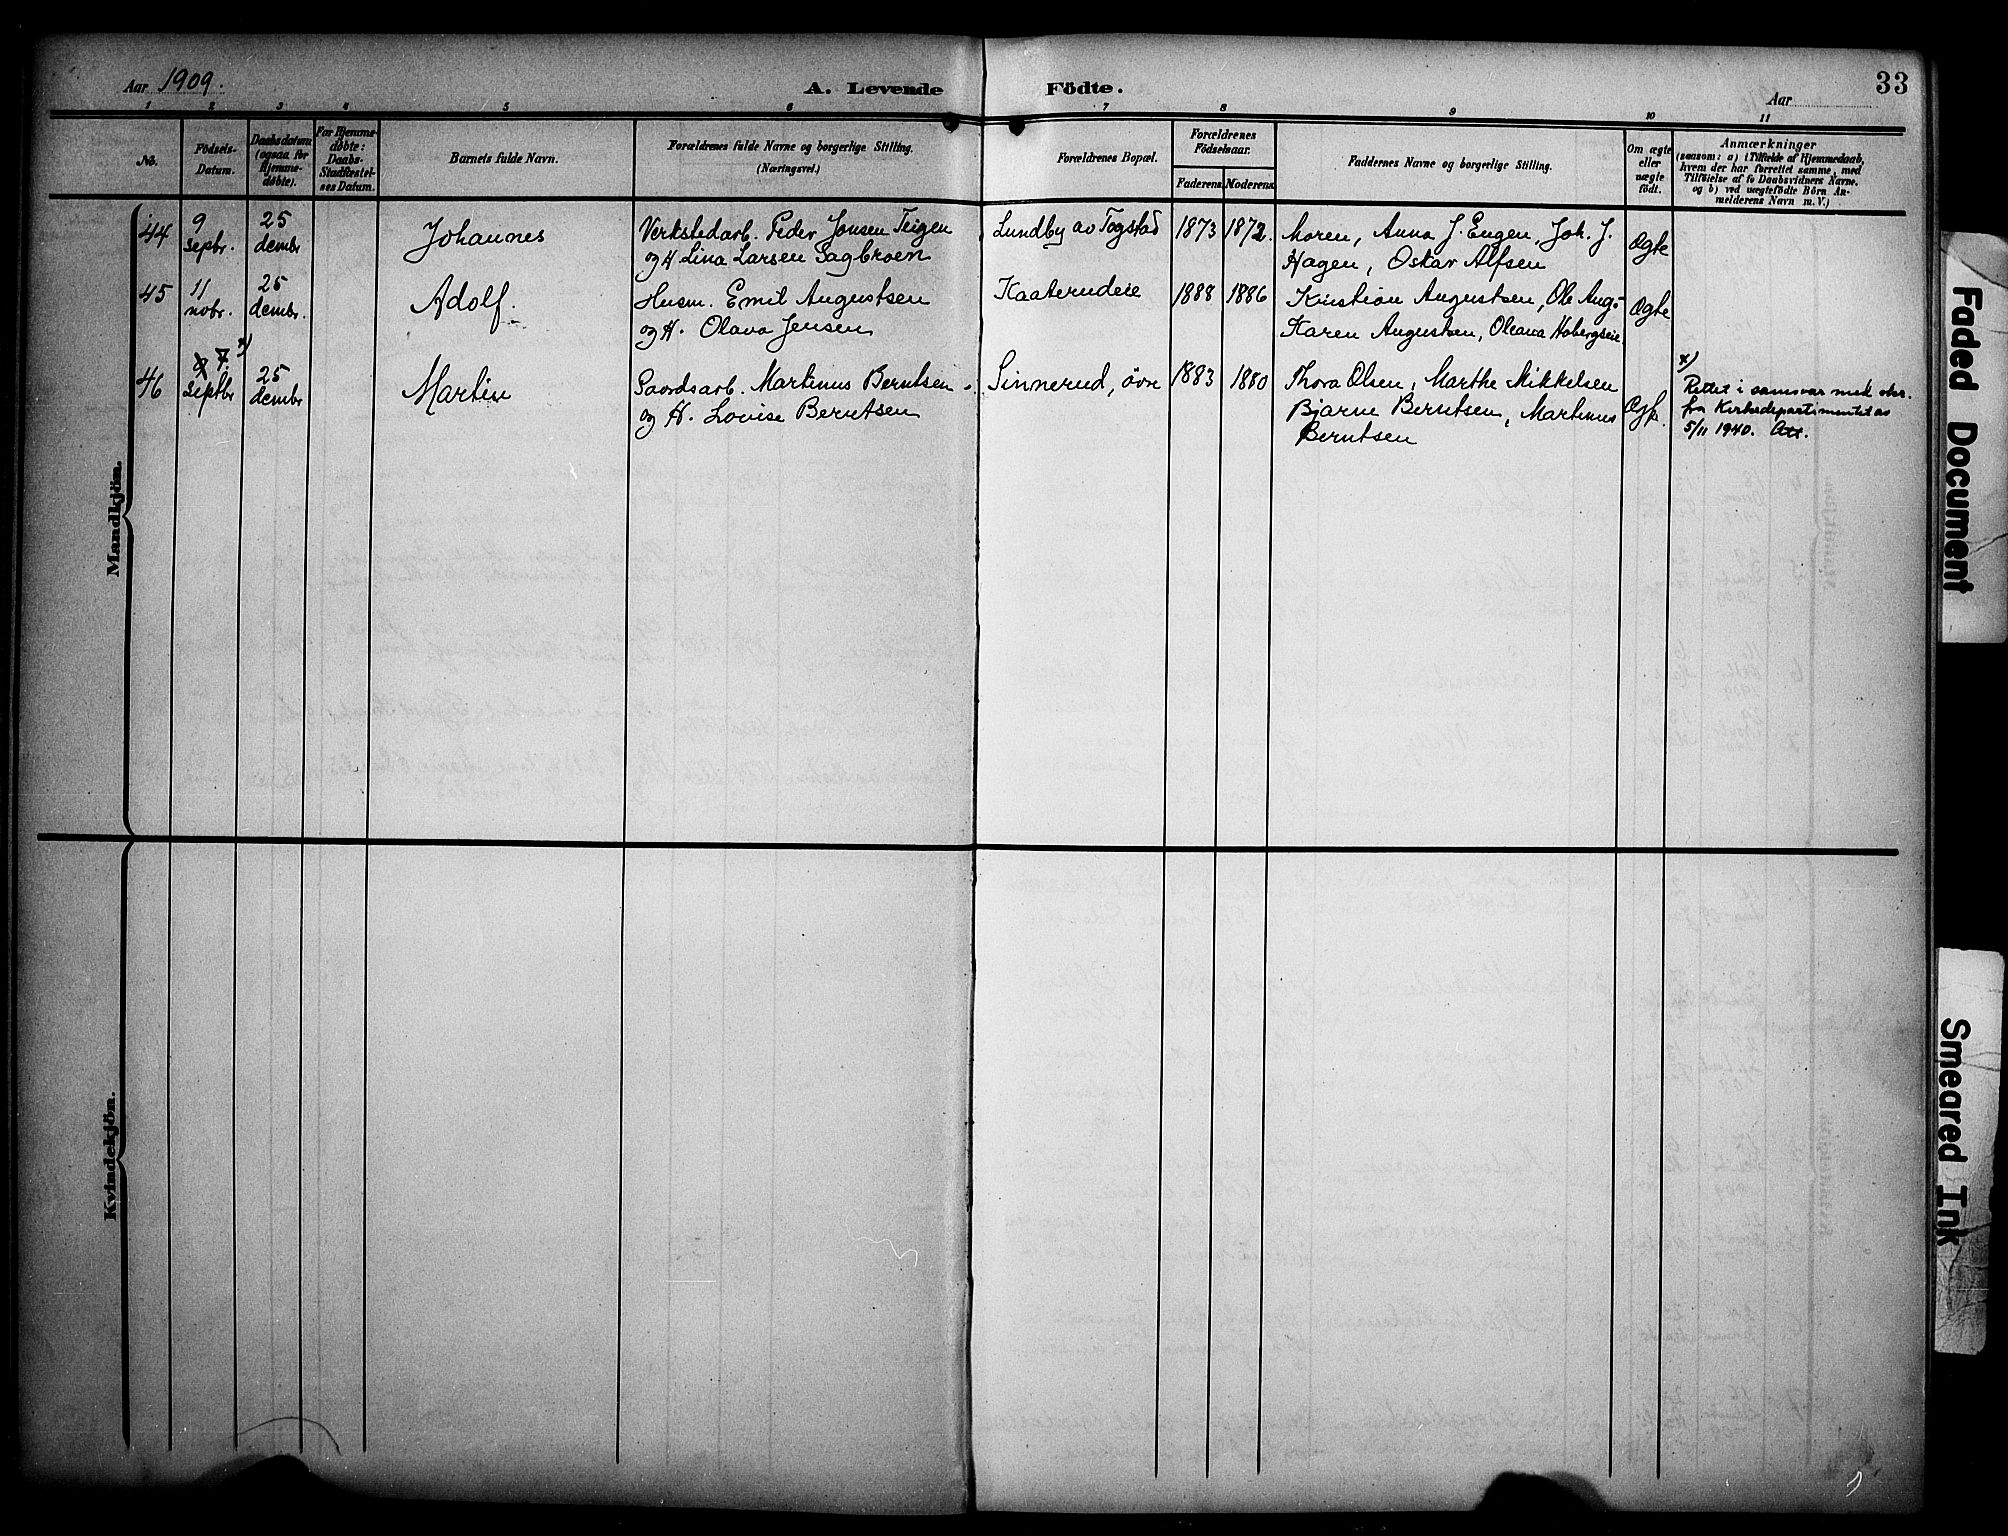 Aar 1909.
A. Levende Födte.
Aar
33
1 2 3 4 5 6 7 8 9 10 11
No.
Födsels-
Datum.
Daabsdatum
(ogsaa for
Hjemme-
døbte).
For Hjemme-
døbte:
Daabs-
Stadfæstel-
ses Datum.
Barnets fulde Navn.
Forældrenes fulde Navne og borgerlige Stilling.
(Næringsvei.)
Forældrenes Bopæl.
Forældrenes
Födselsaar.
Faderens
Moderens
Faddernes Navne og borgerlige Stilling.
Om ægte
eller
uægte
födt.
Anmærkninger
(saasom: a) i Tilfælde af Hjemmedaab,
hvem der har forrettet samme, med
Tilföielse af to Daabsvidners Navne,
og b) ved uægtefödte Börn An-
melderens Navn m. V.)
Mandkjön.
44
9
septbr.
25
dembr
Johannes
Verkstedarb. Peder Jonsen Teigen
og H. Lina Larsen Sagbroen
Lundby av Togstad
1873
1872.
Maren, Anna J. Engen, Joh. J.
Hagen, Oskar Alfsen
Ægte
45
11
nobr.
25
dembr.
Adolf.
Husm. Emil Augustsen
og H. Olava Jensen
Kaaterudeie
1888
1886
Kristian Augustsen, Ole Aug.
Karen Augustsen, Oleana Hobergseie
Ægte
46
7. x)
septbr
25
dembr
Martin
Gaardsarb. Martinus Berntsen
og H. Lovise Berntsen
Sinnerud, övre
1883
1880
Thora Olsen, Marthe Mikkelsen
Bjarne Berntsen, Martinus
Berntsen
Ægte.
x)
Rettet i samsvar med skr.
fra Kirkedepartementet av
5/11 1940.
Kvindekjön.
Faded Document
Smeared Ink